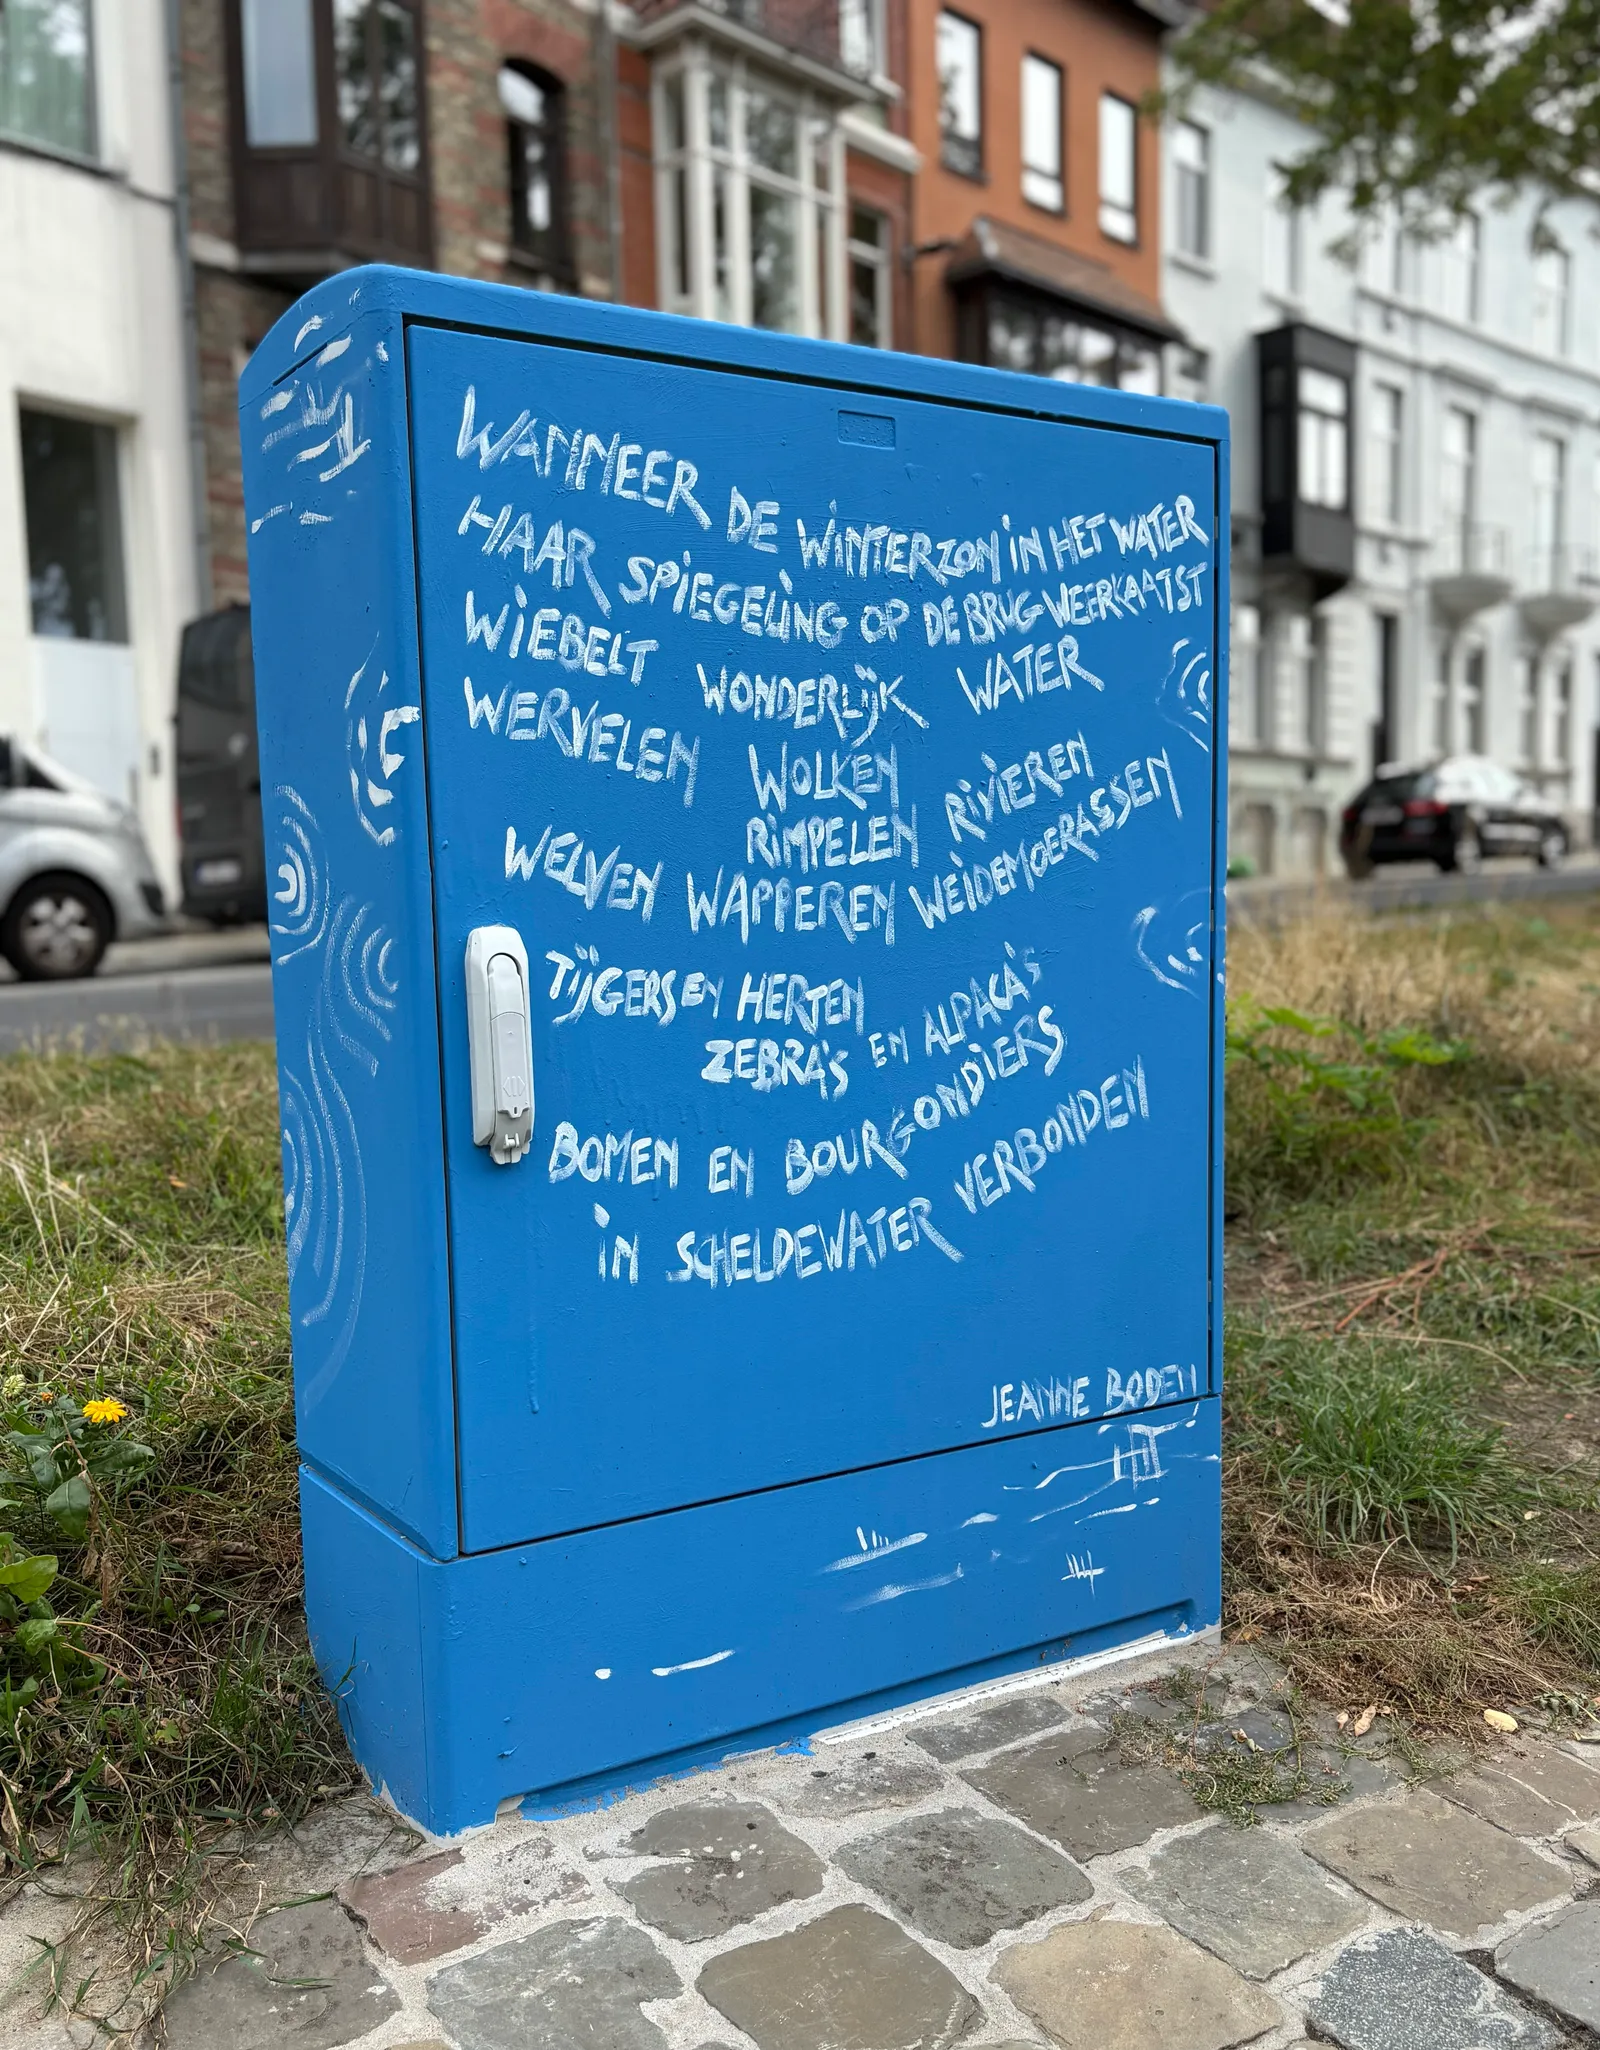 WANNEER DE WINTERZON IN HET WATER
HAAR SPIEGELING OP DE BRUG WEERKAATST
WIEBELT WONDERLIJK WATER
WERVELEN WOLKEN
RIMPELEN RIVIEREN
WELVEN WAPPEREN WEIDEMOERASSEN
TIJGERS EN HERTEN
ZEBRA'S EN ALPACA'S
BOMEN EN BOURGONDIERS
IN SCHELDEWATER VERBONDEN
JEANNE BODEN